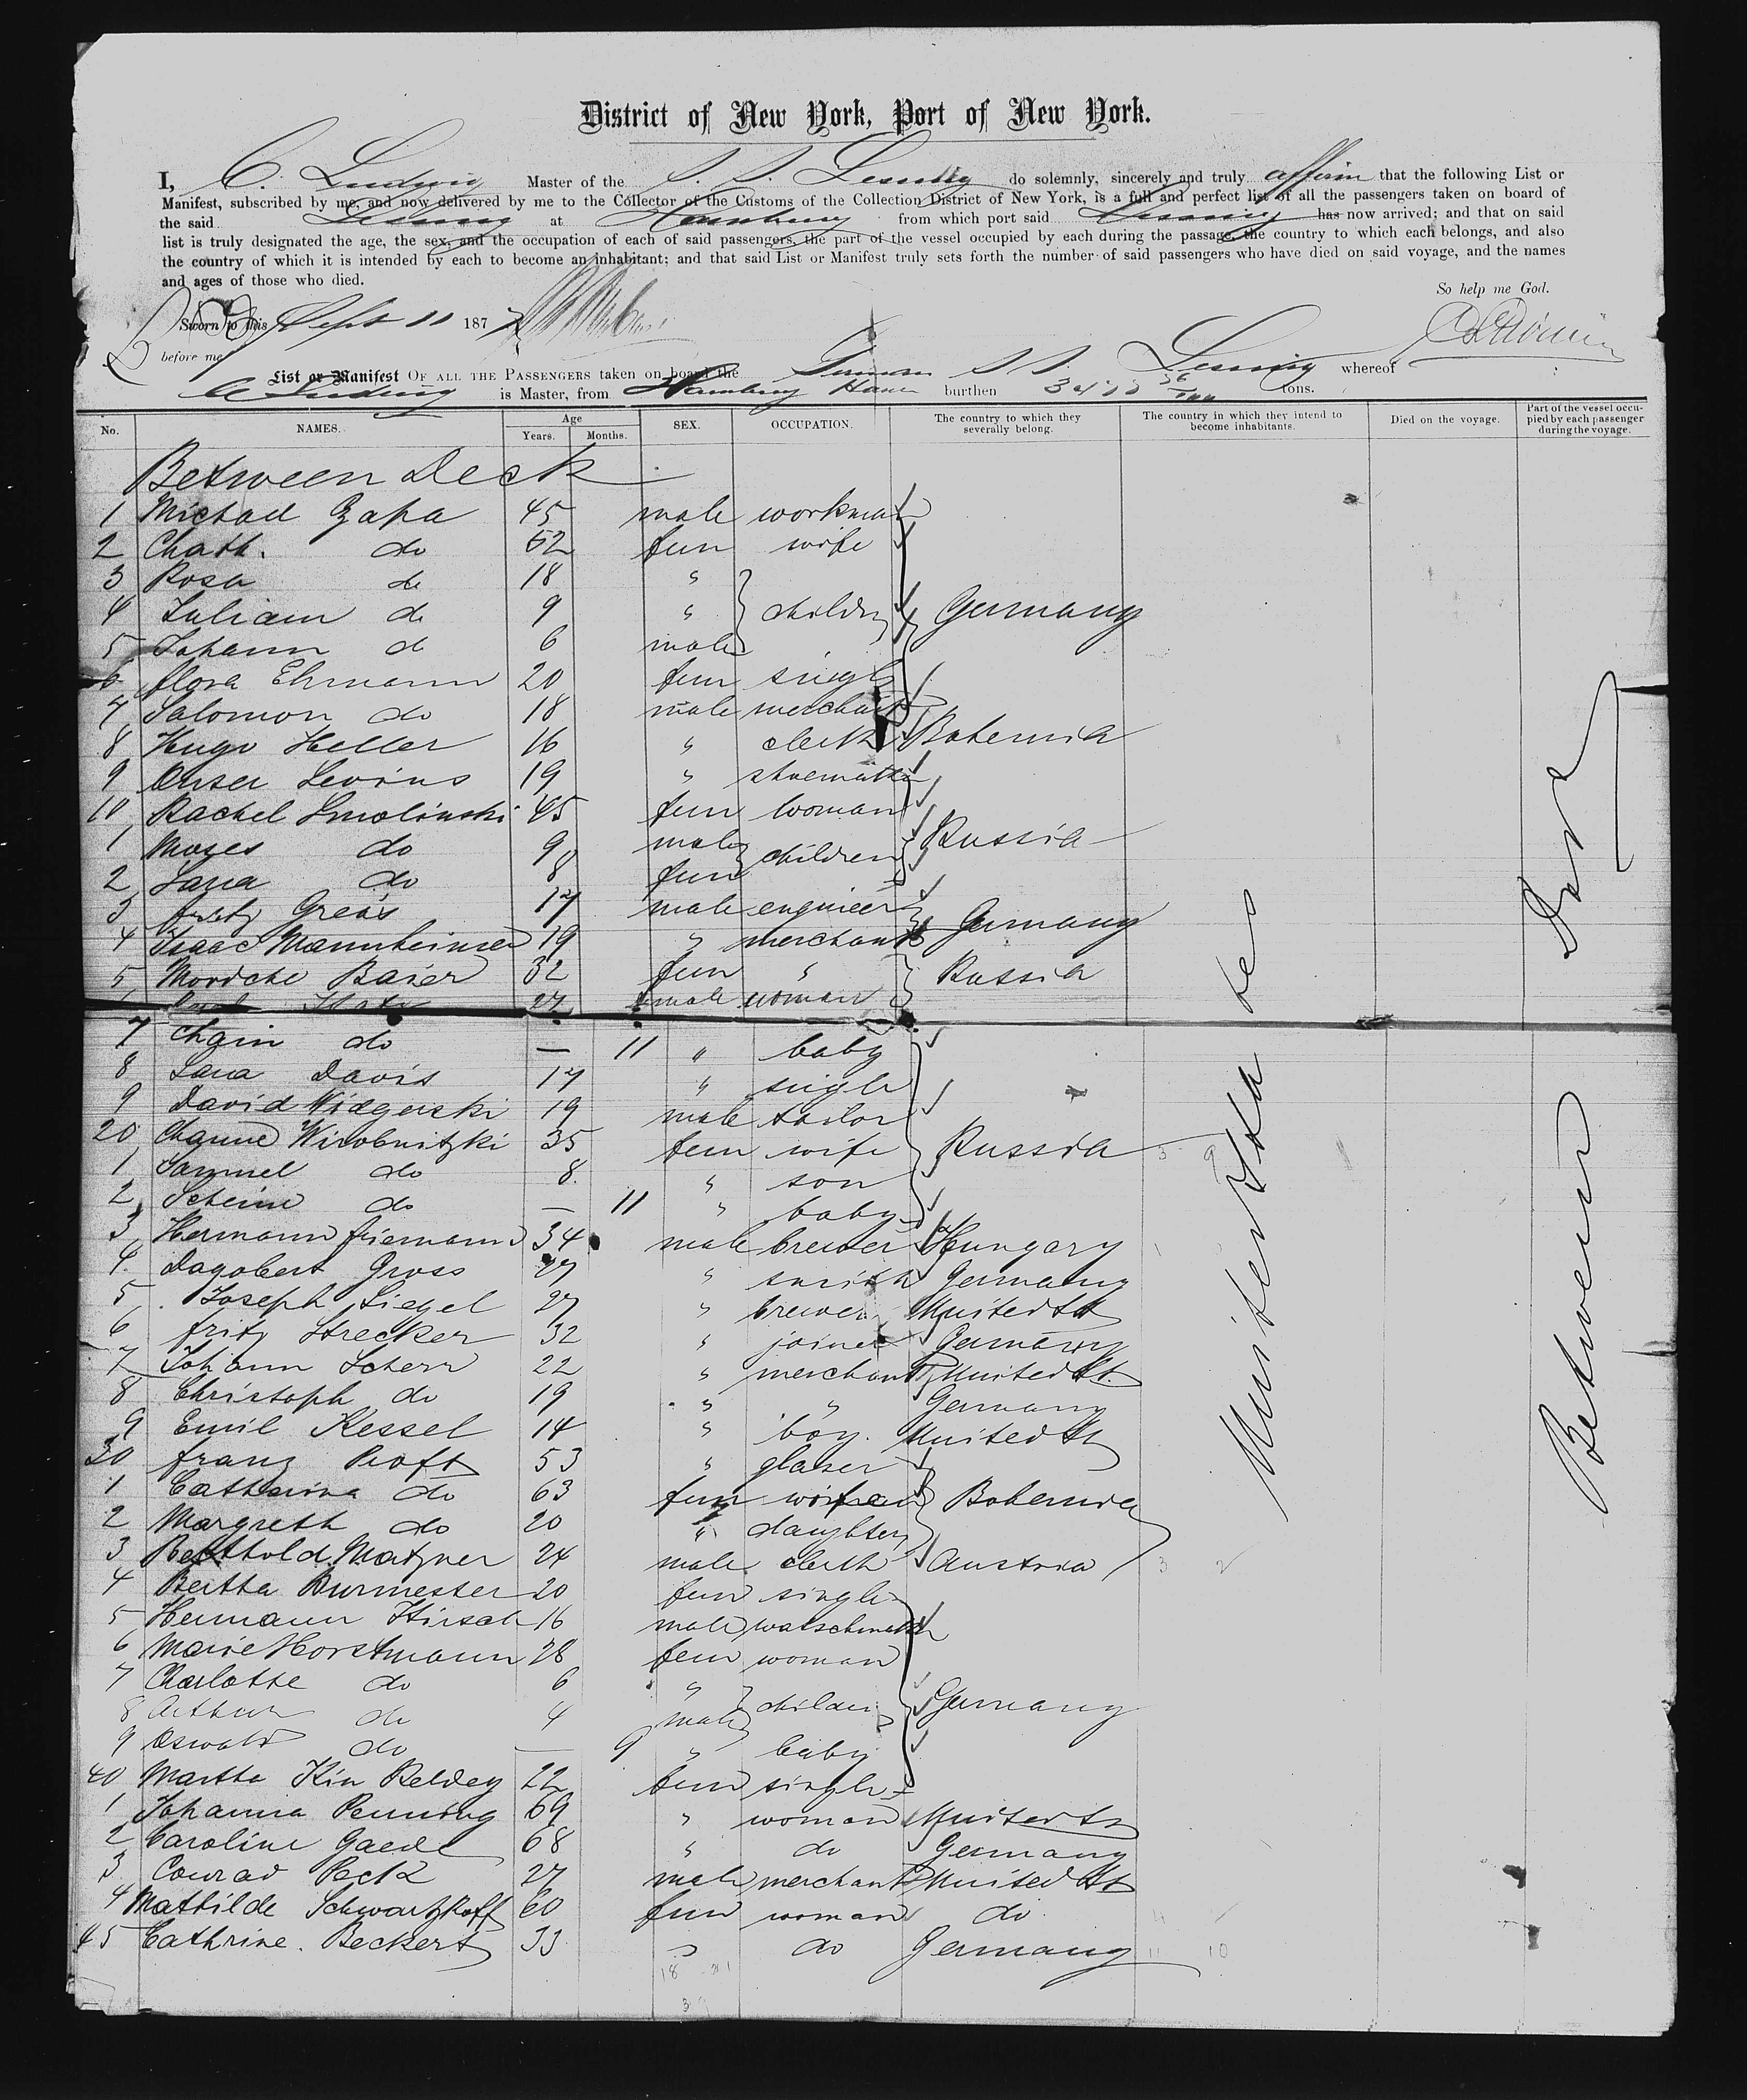 District of New York, Port of New York.
I, C. Ludwig Master of the S. S. Lessing do solemnly, sincerely and truly affirm that the following List or
Manifest, subscribed by me, and now delivered by me to the Collector of the Customs of the Collection District of New York, is a full and perfect list of all the passengers taken on board of
the said Lessing at Hamburg from which port said Lessing has now arrived; and that on said
list is truly designated the age, the sex, and the occupation of each of said passengers, the part of the vessel occupied by each during the passage, the country to which each belongs, and also
the country of which it is intended by each to become an inhabitant; and that said List or Manifest truly sets forth the number of said passengers who have died on said voyage, and the names
and ages of those who died.
So help me God.
Sworn to this Sept 11 187
before me
List or Manifest OF ALL THE PASSENGERS taken on board the German S S. Lessing whereof
C Ludwig is Master, from Hamburg Havre burthen tons.
No. NAMES. Age Years. Months. SEX. OCCUPATION. The country to which they severally belong. The country in which they intend to become inhabitants. Died on the voyage. Part of the vessel occupied by each passenger during the voyage.
Between Deck
1 Michael Zapa 45 male workman
2 Chath. do 52 fem wife
3 Rosa do 18 "
4 Juliam do 9 " childr Germany
5 Johann do 6 male
6 flora Ehmann 20 fem single
7 Salomon do 18 male merchant
8 Hugo Heller 16 " clerk Bohemia
9 Levins 19 " shoemaker
10 Rachel Smolinski 45 fem woman
1 Moses do 9 male children Russia
2 Sara do 8 fem
3 fritz Greas 17 male engineer
4 Isaac Mannheimer 19 " merchant Germany
5 Mordche Baier 32 fem " Russia
27 male woman
7 Chain do — 11 " baby
8 Sara Davis 17 " single
9 David Widgerski 19 male tailor
20 Channe Wirobnitzki 35 fem wife Russia
1 Samuel do 8. " son
2 Scheine do — 11 " baby
3 Hermann friemann 34 male brewer Hungary
4 Dagobert Gross 27 " smith Germany
5 Joseph Siegel 27 " brewer United St
6 fritz Strecker 32 " joiner Germany
7 Johann Scherr 22 " merchant United St.
8 Christoph do 19 " " Germany
9 Emil Kessel 14 " boy. United St
30 franz Proft 53 " glaser
1 Catharina do 63 fem woman Bohemia
2 Margreth do 20 " daughter
3 Berthold Matzner 24 male clerk Austria
4 Bertha Burmester 20 fem single
5 Hermann Hirsch 16 male watschmak
6 Marie Horstmann 28 fem woman
7 Charlotte do 6 "
8 Arthur do 4 male childer Germany
9 Oswald do — 9 " baby
40 Martha Kin Reldey 22 fem single
1 Johanna Penning 69 " woman United St
2 Caroline Gaede 68 " do Germany
3 Conrad Peck 27 male merchant United St
4 Mathilde Schwartzkopf 60 fem woman do
45 Cathrine. Beckert 33 " do Germany
United States
Between Deck